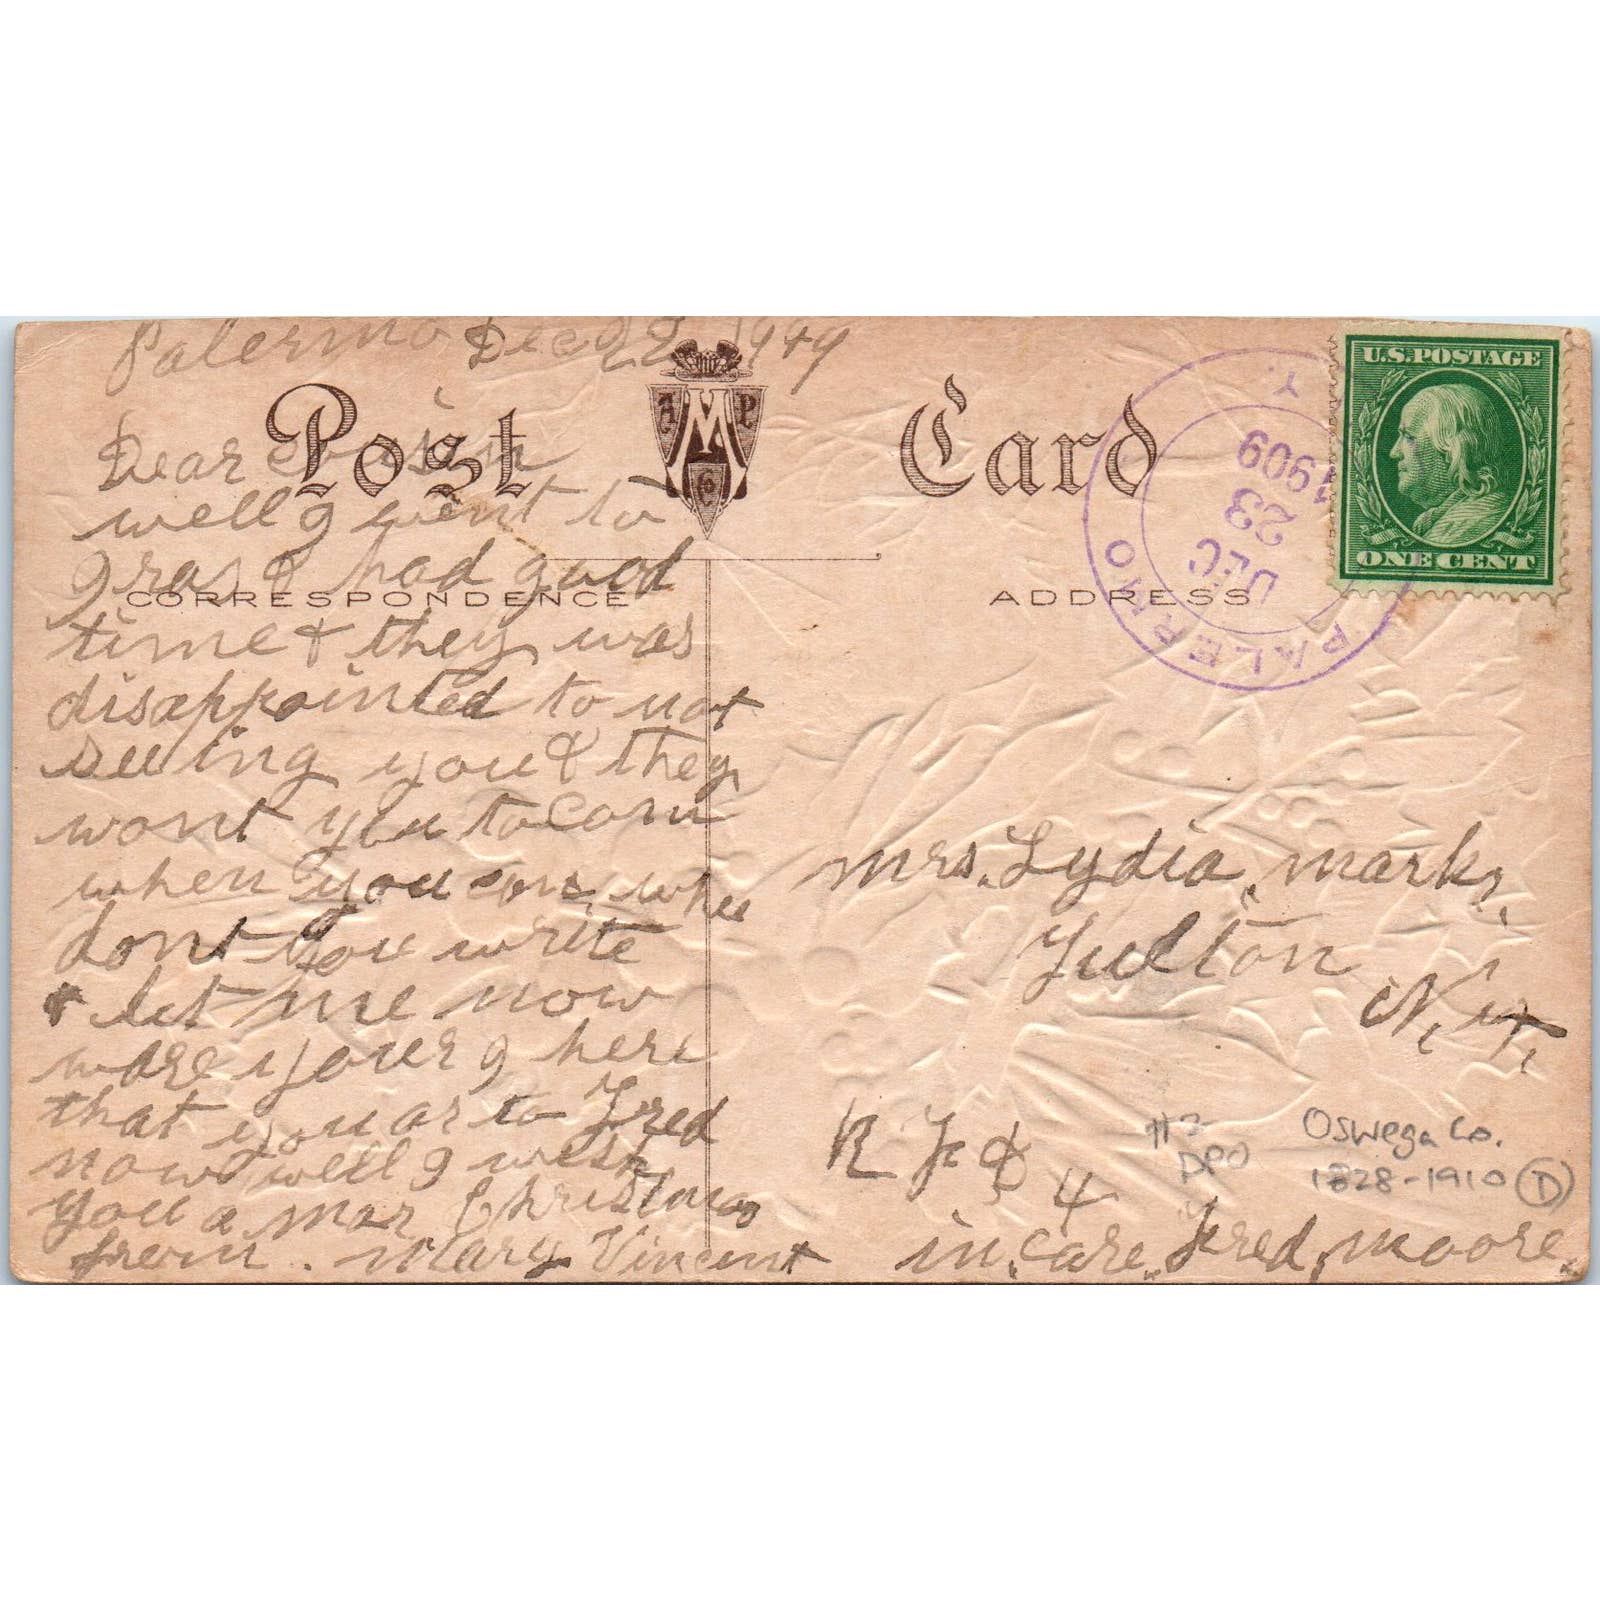 Palermo Dec 22 1949
Post Card
Dear Cousin
well I went to
gras & had good
CORRESPONDENCE
time & they was
disappointed to not
seeing you & they
wont you to Com
when you can, whee
dont you write
& let me now
ware your I here
that you ar to Fred
now well I wesh
you a mar Christmas
from . Mary Vincent
A M P Co
ADDRESS
PALERMO Y.
DEC
23
1909
U.S. POSTAGE
ONE CENT
Mrs. Lydia, Marks,
Fulton
N. Y.
R F D
4
in, care, Fred, Moore,
#2
DPO
Oswega Co.
1828-1910 D